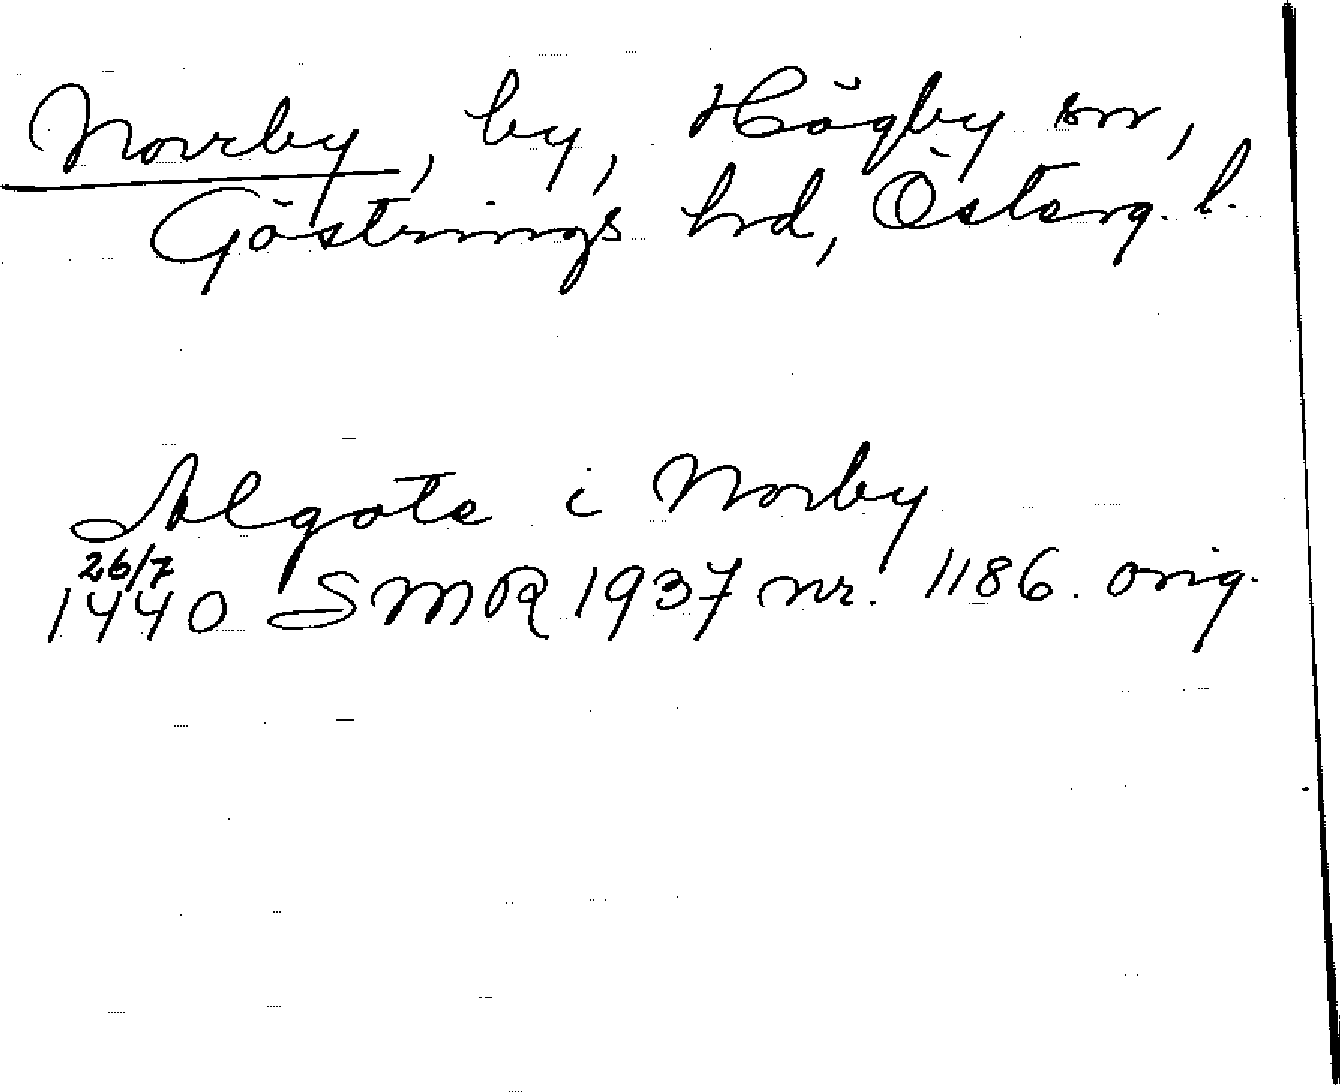 Norrby, by, Högby sn,
Göstrings hrd, Österg. l.
Algote i Norby
26/7
1440 SMR 1937 nr. 1186. orig.